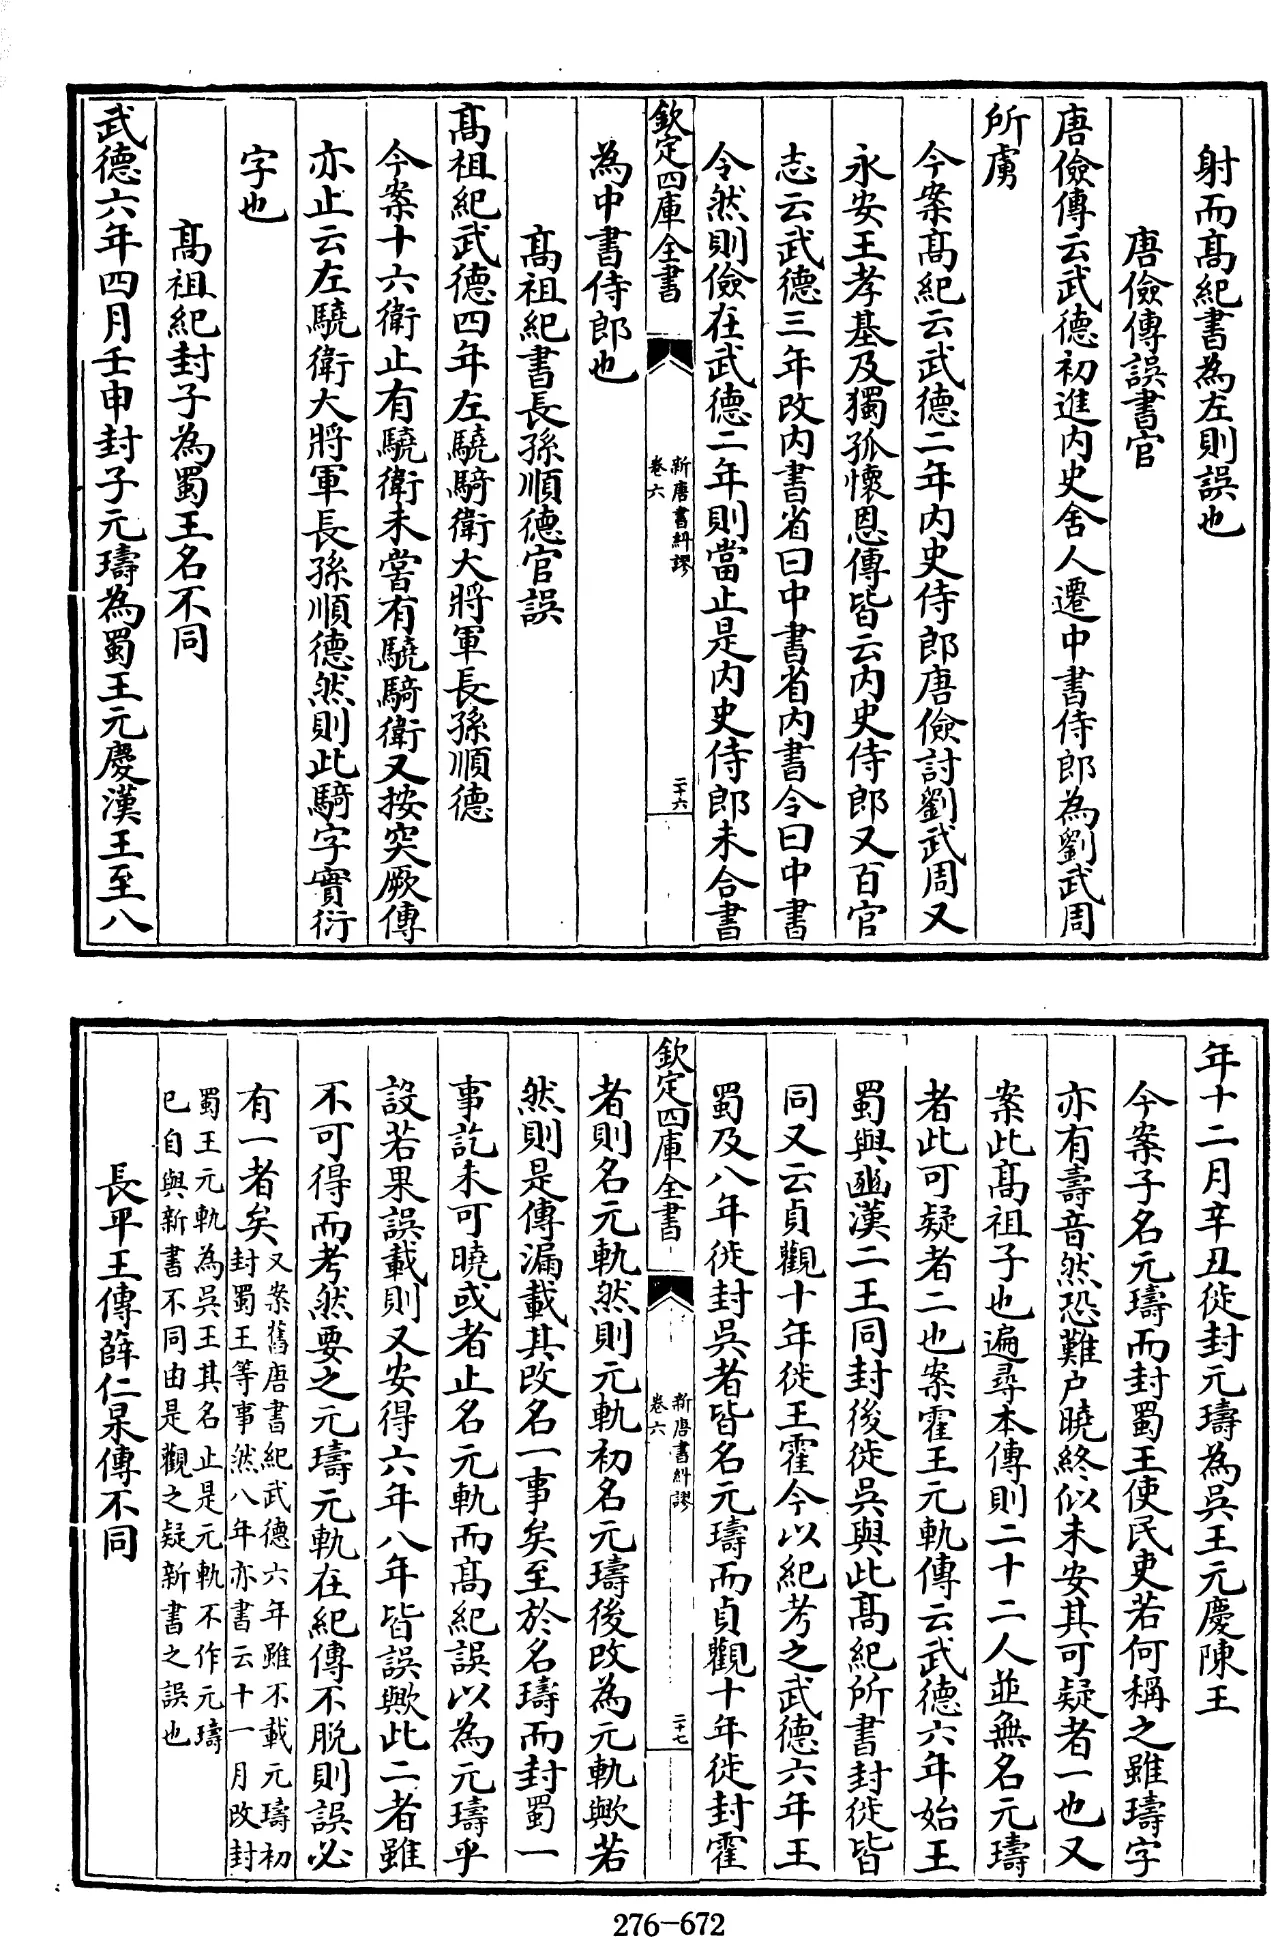 射而髙紀書為左則誤也
唐儉傳誤書官
唐儉傳云武德初進内史舍人遷中書侍郎為劉武周
所虜
今案髙紀云武德二年内史侍郎唐儉討劉武周又
永安王孝基及獨孤懷恩傳皆云内史侍郎又百官
志云武德三年改内書省曰中書省内書令曰中書
令然則儉在武德二年則當止是内史侍郎未合書
欽定四庫全書
新唐書糾謬
卷六
二十六
為中書侍郎也
髙祖紀書長孫順德官誤
髙祖紀武德四年左驍騎衛大將軍長孫順德
今案十六衛止有驍衛未嘗有驍騎衛又按突厥傳
亦止云左驍衛大將軍長孫順德然則此騎字實衍
字也
髙祖紀封子為蜀王名不同
武德六年四月壬申封子元璹為蜀王元慶漢王至八
年十二月辛丑徙封元璹為吳王元慶陳王
今案子名元璹而封蜀王使民吏若何稱之雖璹字
亦有壽音然恐難户曉終似未安其可疑者一也又
案此髙祖子也遍尋本傳則二十二人並無名元璹
者此可疑者二也案霍王元軌傳云武德六年始王
蜀與豳漢二王同封後徙吳與此髙紀所書封徙皆
同又云貞觀十年徙王霍今以紀考之武德六年王
蜀及八年徙封吳者皆名元璹而貞觀十年徙封霍
欽定四庫全書
新唐書糾謬
卷六
二十七
者則名元軌然則元軌初名元璹後改為元軌歟若
然則是傳漏載其改名一事矣至於名璹而封蜀一
事訖未可曉或者止名元軌而髙紀誤以為元璹乎
設若果誤載則又安得六年八年皆誤歟此二者雖
不可得而考然要之元璹元軌在紀傳不脱則誤必
有一者矣又案舊唐書紀武德六年雖不載元璹初
封蜀王等事然八年亦書云十一月改封
蜀王元軌為吳王其名止是元軌不作元璹
已自與新書不同由是觀之疑新書之誤也
長平王傳薛仁杲傳不同
276-672